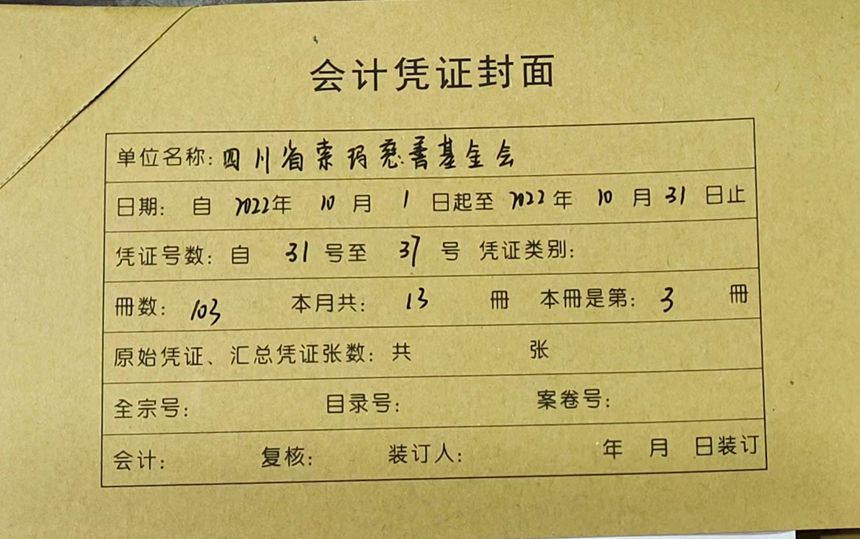 会计凭证封面
单位名称: 四川省索玛慈善基金会
日期: 自 2022年 10 月 1 日起至 2022 年 10 月 31 日止
凭证号数: 自 31 号至 37 号 凭证类别:
冊数: 103 本月共: 13 冊 本冊是第: 3 冊
原始凭证、汇总凭证张数: 共 张
全宗号: 目录号: 案卷号:
会计: 复核: 装订人: 年 月 日装订